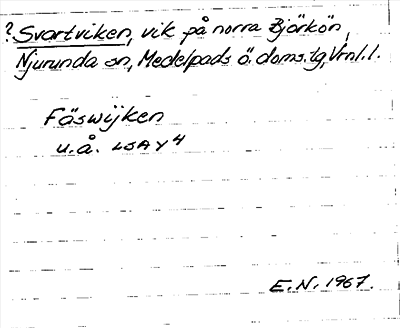 ? Svartviken, vik på norra Björkön,
Njurunda sn, Medelpads ö. doms.lg, Vrnl. l.
Fäswijken
u.å. LSA Y4
E.N. 1967.